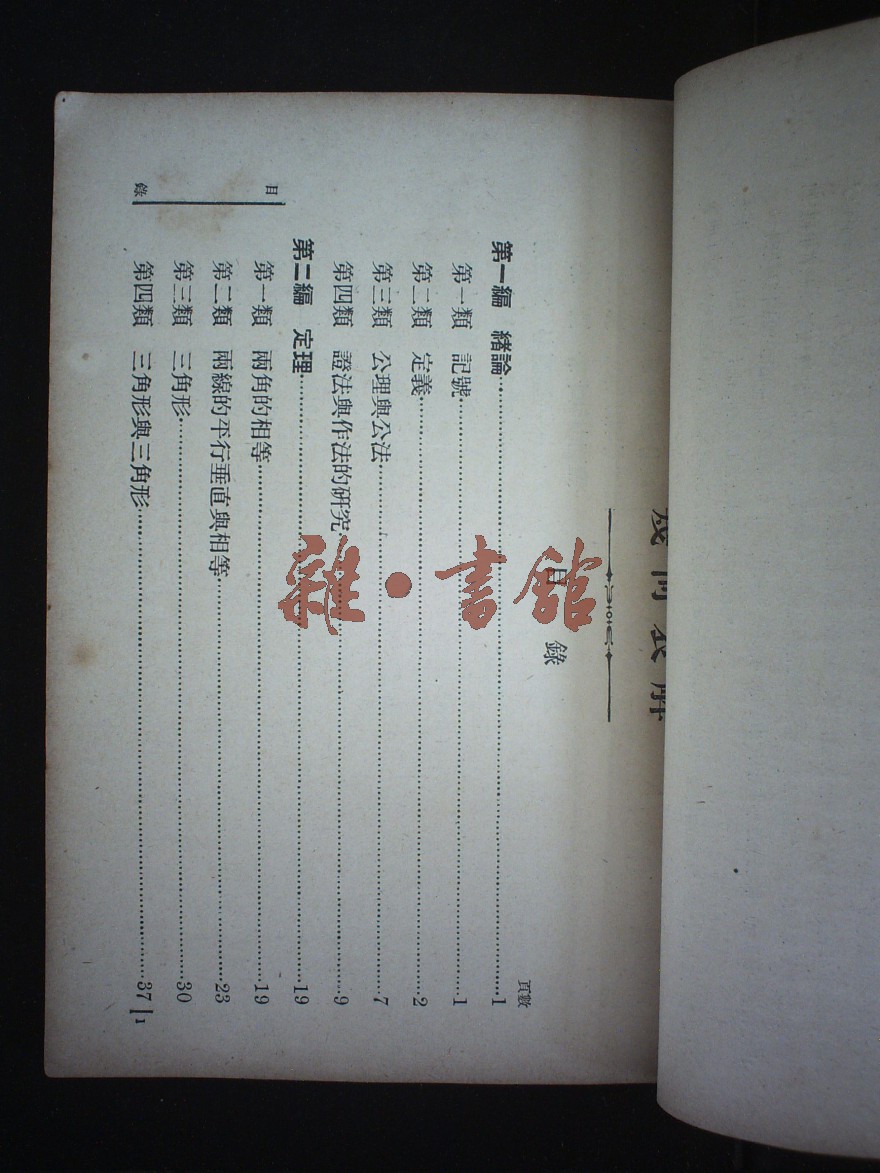 目 錄
頁數
第一編 緒論……1
第一類 記號……1
第二類 定義……2
第三類 公理與公法……7
第四類 證法與作法的研究……9
第二編 定理……19
第一類 兩角的相等……19
第二類 兩線的平行垂直與相等……23
第三類 三角形……30
第四類 三角形與三角形……37
目 錄
1
雜·書館